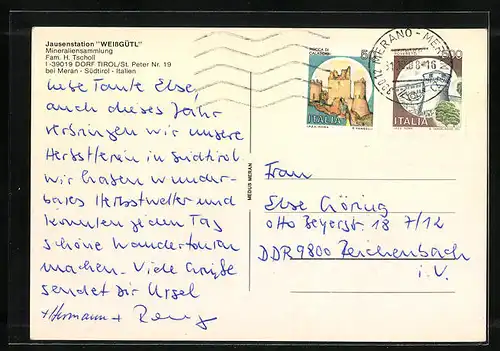 Jausenstation "WEIßGÜTL"
Mineraliensammlung
Fam. H. Tscholl
I-39019 DORF TIROL/St. Peter Nr. 19
bei Meran - Südtirol - Italien
Liebe Tante Else,
auch dieses Jahr
verbringen wir unsere
Herbstferien in Südtirol
wir haben wunder-
bares Herbstwetter und
konnten jeden Tag
schöne Wandertouren
machen. Viele Grüße
sendet Dir Ursel
+ Hermann +
MEDUS MERAN
ROCCA DI
CALASCIO
ITALIA
ITALIA
MERANO - MER
Frau
Else Göring
Otto Beyerstr. 18 7/12
DDR 9800 Reichenbach
i.V.